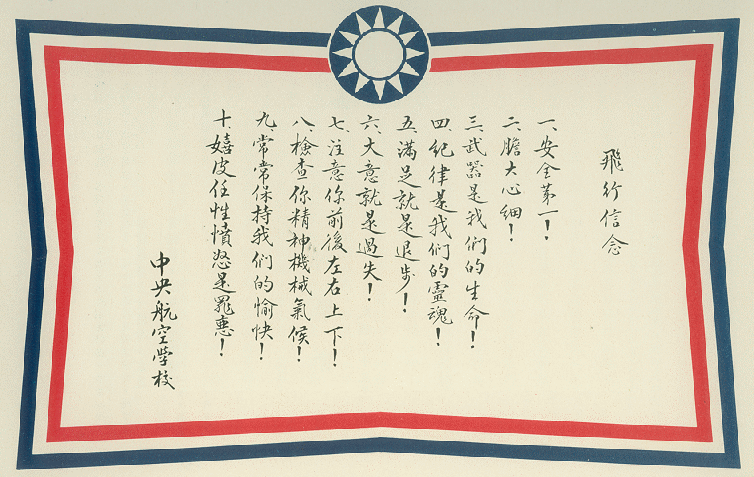 飛行信念
一、安全第一！
二、膽大心細！
三、武器是我们的生命！
四、纪律是我们的靈魂！
五、滿足就是退步！
六、大意就是過失！
七、注意你前後左右上下！
八、檢查你精神機械氣候！
九、常常保持我们的愉快！
十、嬉皮任性憤怒是罪惡！
中央航空学校